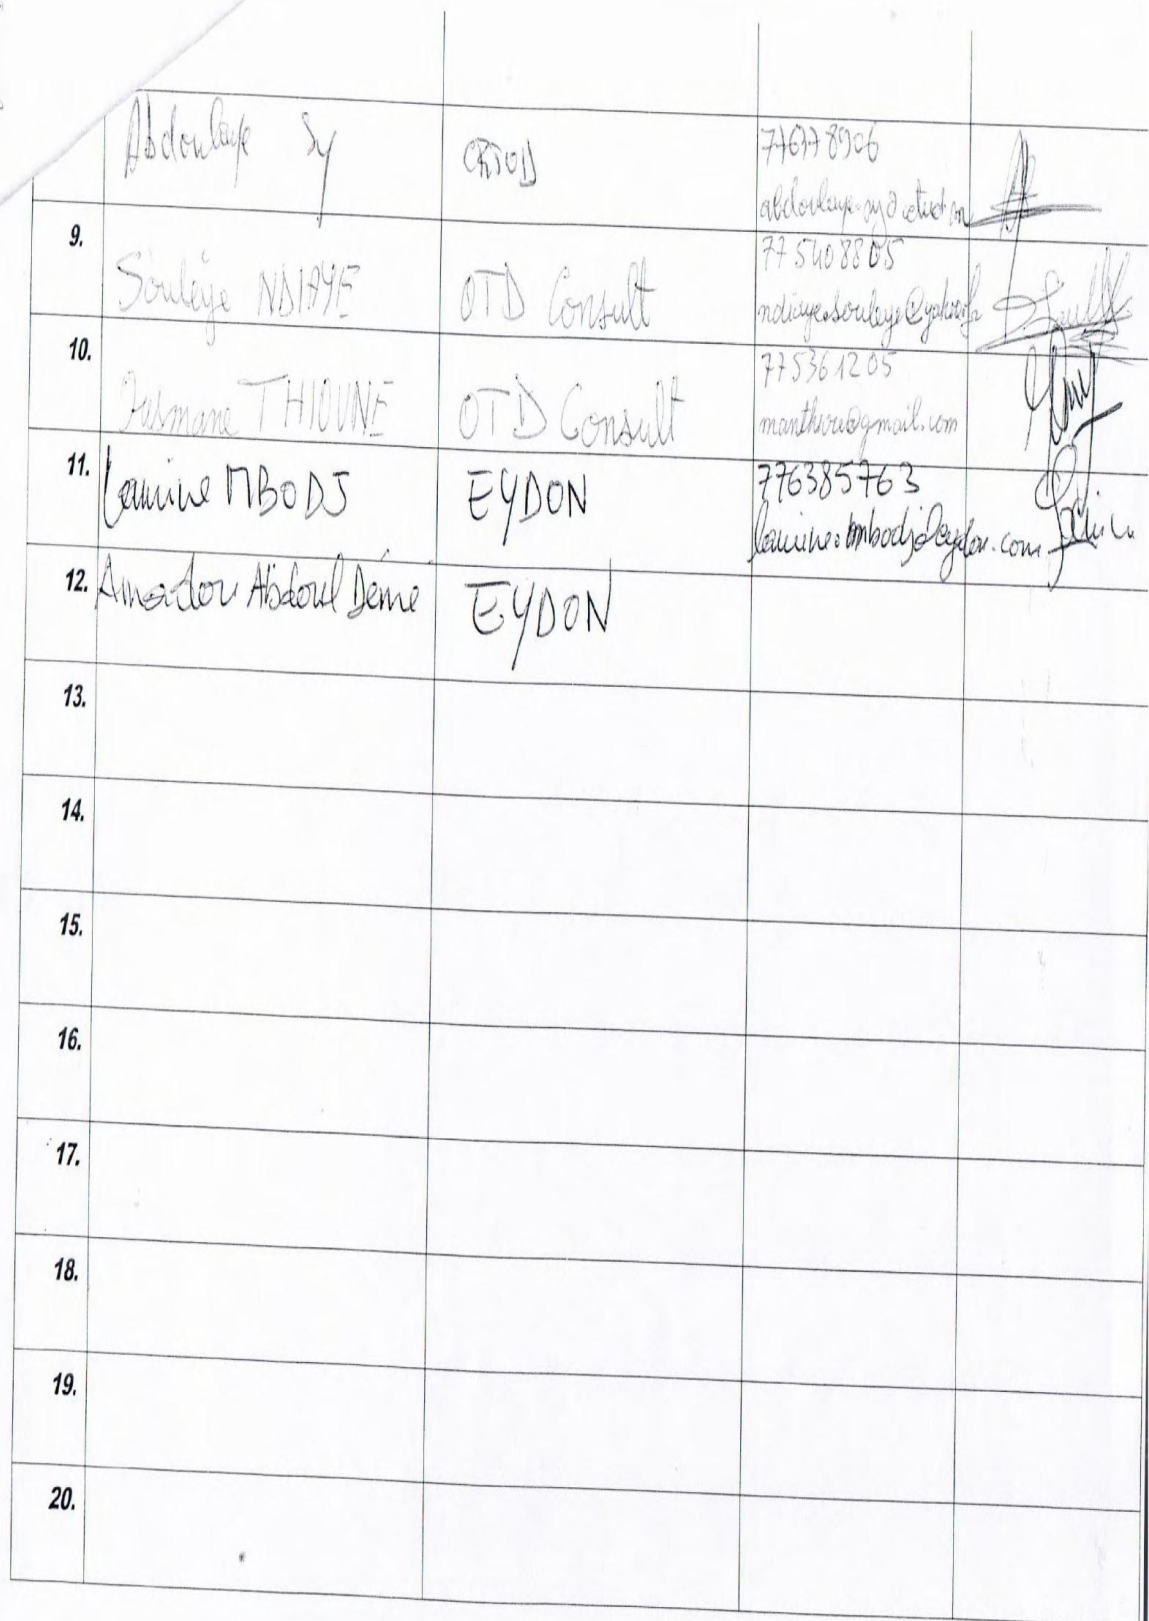 Abdoulaye Sy
776778906
9. Souleye NDIAYE OTD Consult
775408805
ndiaye.souleye@yahoo.fr
10. Ousmane THIOUNE OTD Consult
775361205
@gmail.com
11. Lamine MBODJ EYDON
776385763
lamine.mbodj@eydon.com
12. Amadou Abdoul Dème EYDON
13.
14.
15.
16.
17.
18.
19.
20.